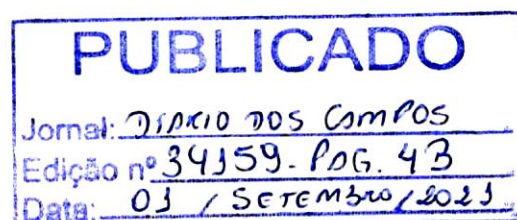 PUBLICADO
Jornal: DIARIO DOS CAMPOS
Edição nº 34159 - PAG. 4B
Data: 01 / SETEMBRO / 2021